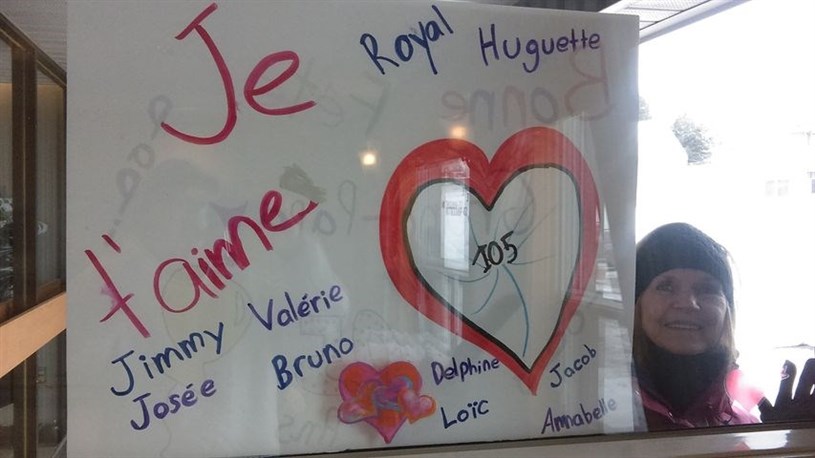 Je
Royal Huguette
Bonne
t'aime
105
Jimmy Valérie
Josée Bruno
Delphine Jacob
Loïc Annabelle